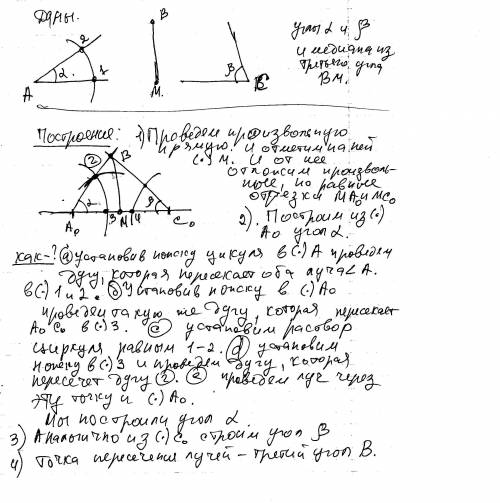 Даны.
B
2
α
1
A
M
β
C
углы α и β
и медиана из
третьего угла
BM.
Построение: 1) Проведем произвольную
прямую и отметим на ней
(·) M. И от нее
отложим произволь-
ные, но равные
отрезки MA₀ и MC₀
2). Построим из (·)
A₀ угол α.
2 B
α 3 M 4 β
A₀ C₀
как-? ⓐ установив ножку циркуля в (·) A проведем
дугу, которая пересекает оба луча ∠ A.
в (·) 1 и 2. ⓑ Установив ножку в (·) A₀
проведем такую же дугу, которая пересекает
A₀C₀ в (·) 3. ⓒ установим раствор
циркуля равным 1-2. ⓓ установим
ножку в (·) 3 и проведем дугу, которая
пересечет дугу ②. ⓔ проведем луч через
эту точку и (·) A₀.
Мы построили угол α
3) Аналогично из (·) C₀ строим угол β
4) Точка пересечения лучей – третий угол B.